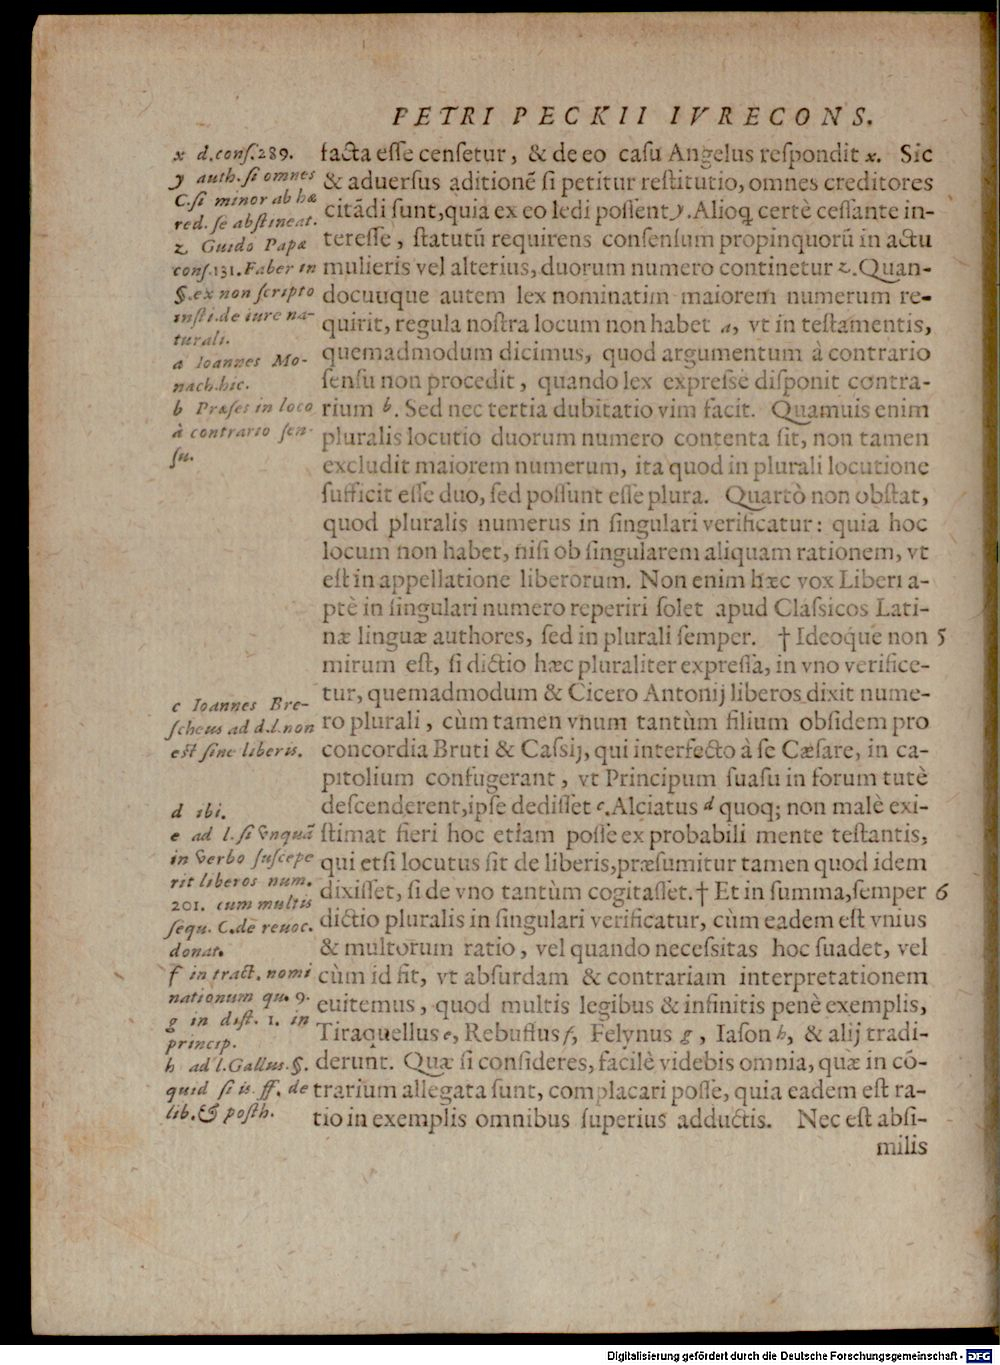 PETRI PECKII IVRECONS.
x d.conſ.289.
y auth.ſi omnes
C.ſi minor ab hæ
red. ſe abſtineat.
z Guido Papæ
conſ.131. Faber in
§.ex non ſcripto
inſti.de iure na-
turali.
a Ioannes Mo-
nach.hic.
b Præſes in loco
à contrario ſen-
ſu.
c Ioannes Bre-
ſcheus ad d.l.non
est ſine liberis.
d ibi.
e ad l.ſi vnquā
in verbo ſuſcepe
rit liberos num.
201. cum multis
ſequ. C.de reuoc.
donat.
f in tract. nomi
nationum qu. 9.
g in diſt. 1. in
princip.
h ad l.Gallus.§.
quid ſi is ff. de
lib.& poſth.
facta eſſe cenſetur, & de eo caſu Angelus reſpondit x. Sic
& aduerſus aditionē ſi petitur reſtitutio, omnes creditores
citādi ſunt,quia ex eo ledi poſſent y.Alioq; certè ceſſante in-
tereſſe, ſtatutū requirens conſenſum propinquorū in actu
mulieris vel alterius, duorum numero continetur z.Quan-
docunque autem lex nominatim maiorem numerum re-
quirit, regula noſtra locum non habet a, vt in teſtamentis,
quemadmodum dicimus, quod argumentum à contrario
ſenſu non procedit, quando lex expreſsè diſponit contra-
rium b. Sed nec tertia dubitatio vim facit. Quamuis enim
pluralis locutio duorum numero contenta ſit, non tamen
excludit maiorem numerum, ita quod in plurali locutione
ſufficit eſſe duo, ſed poſſunt eſſe plura. Quartò non obſtat,
quod pluralis numerus in ſingulari verificatur: quia hoc
locum non habet, niſi ob ſingularem aliquam rationem, vt
eſt in appellatione liberorum. Non enim hæc vox Liberi a-
ptè in ſingulari numero reperiri ſolet apud Claſsicos Lati-
næ linguæ authores, ſed in plurali ſemper. † Ideoque non 5
mirum eſt, ſi dictio hæc pluraliter expreſſa, in vno verifice-
tur, quemadmodum & Cicero Antonij liberos dixit nume-
ro plurali, cùm tamen vnum tantùm filium obſidem pro
concordia Bruti & Caſsij, qui interfecto à ſe Cæſare, in ca-
pitolium confugerant, vt Principum ſuaſu in forum tutè
deſcenderent,ipſe dediſſet c.Alciatus d quoq; non malè exi-
ſtimat fieri hoc etiam poſſe ex probabili mente teſtantis,
qui etſi locutus ſit de liberis,præſumitur tamen quod idem
dixiſſet, ſi de vno tantùm cogitaſſet.† Et in ſumma,ſemper 6
dictio pluralis in ſingulari verificatur, cùm eadem eſt vnius
& multorum ratio, vel quando neceſsitas hoc ſuadet, vel
cùm id fit, vt abſurdam & contrariam interpretationem
euitemus, quod multis legibus & infinitis penè exemplis,
Tiraquellus e, Rebuffus f, Felynus g, Iaſon h, & alij tradi-
derunt. Quæ ſi conſideres, facilè videbis omnia, quæ in cō-
trarium allegata ſunt, complacari poſſe, quia eadem eſt ra-
tio in exemplis omnibus ſuperius adductis. Nec eſt abſi-
milis
Digitalisierung gefördert durch die Deutsche Forschungsgemeinschaft - DFG